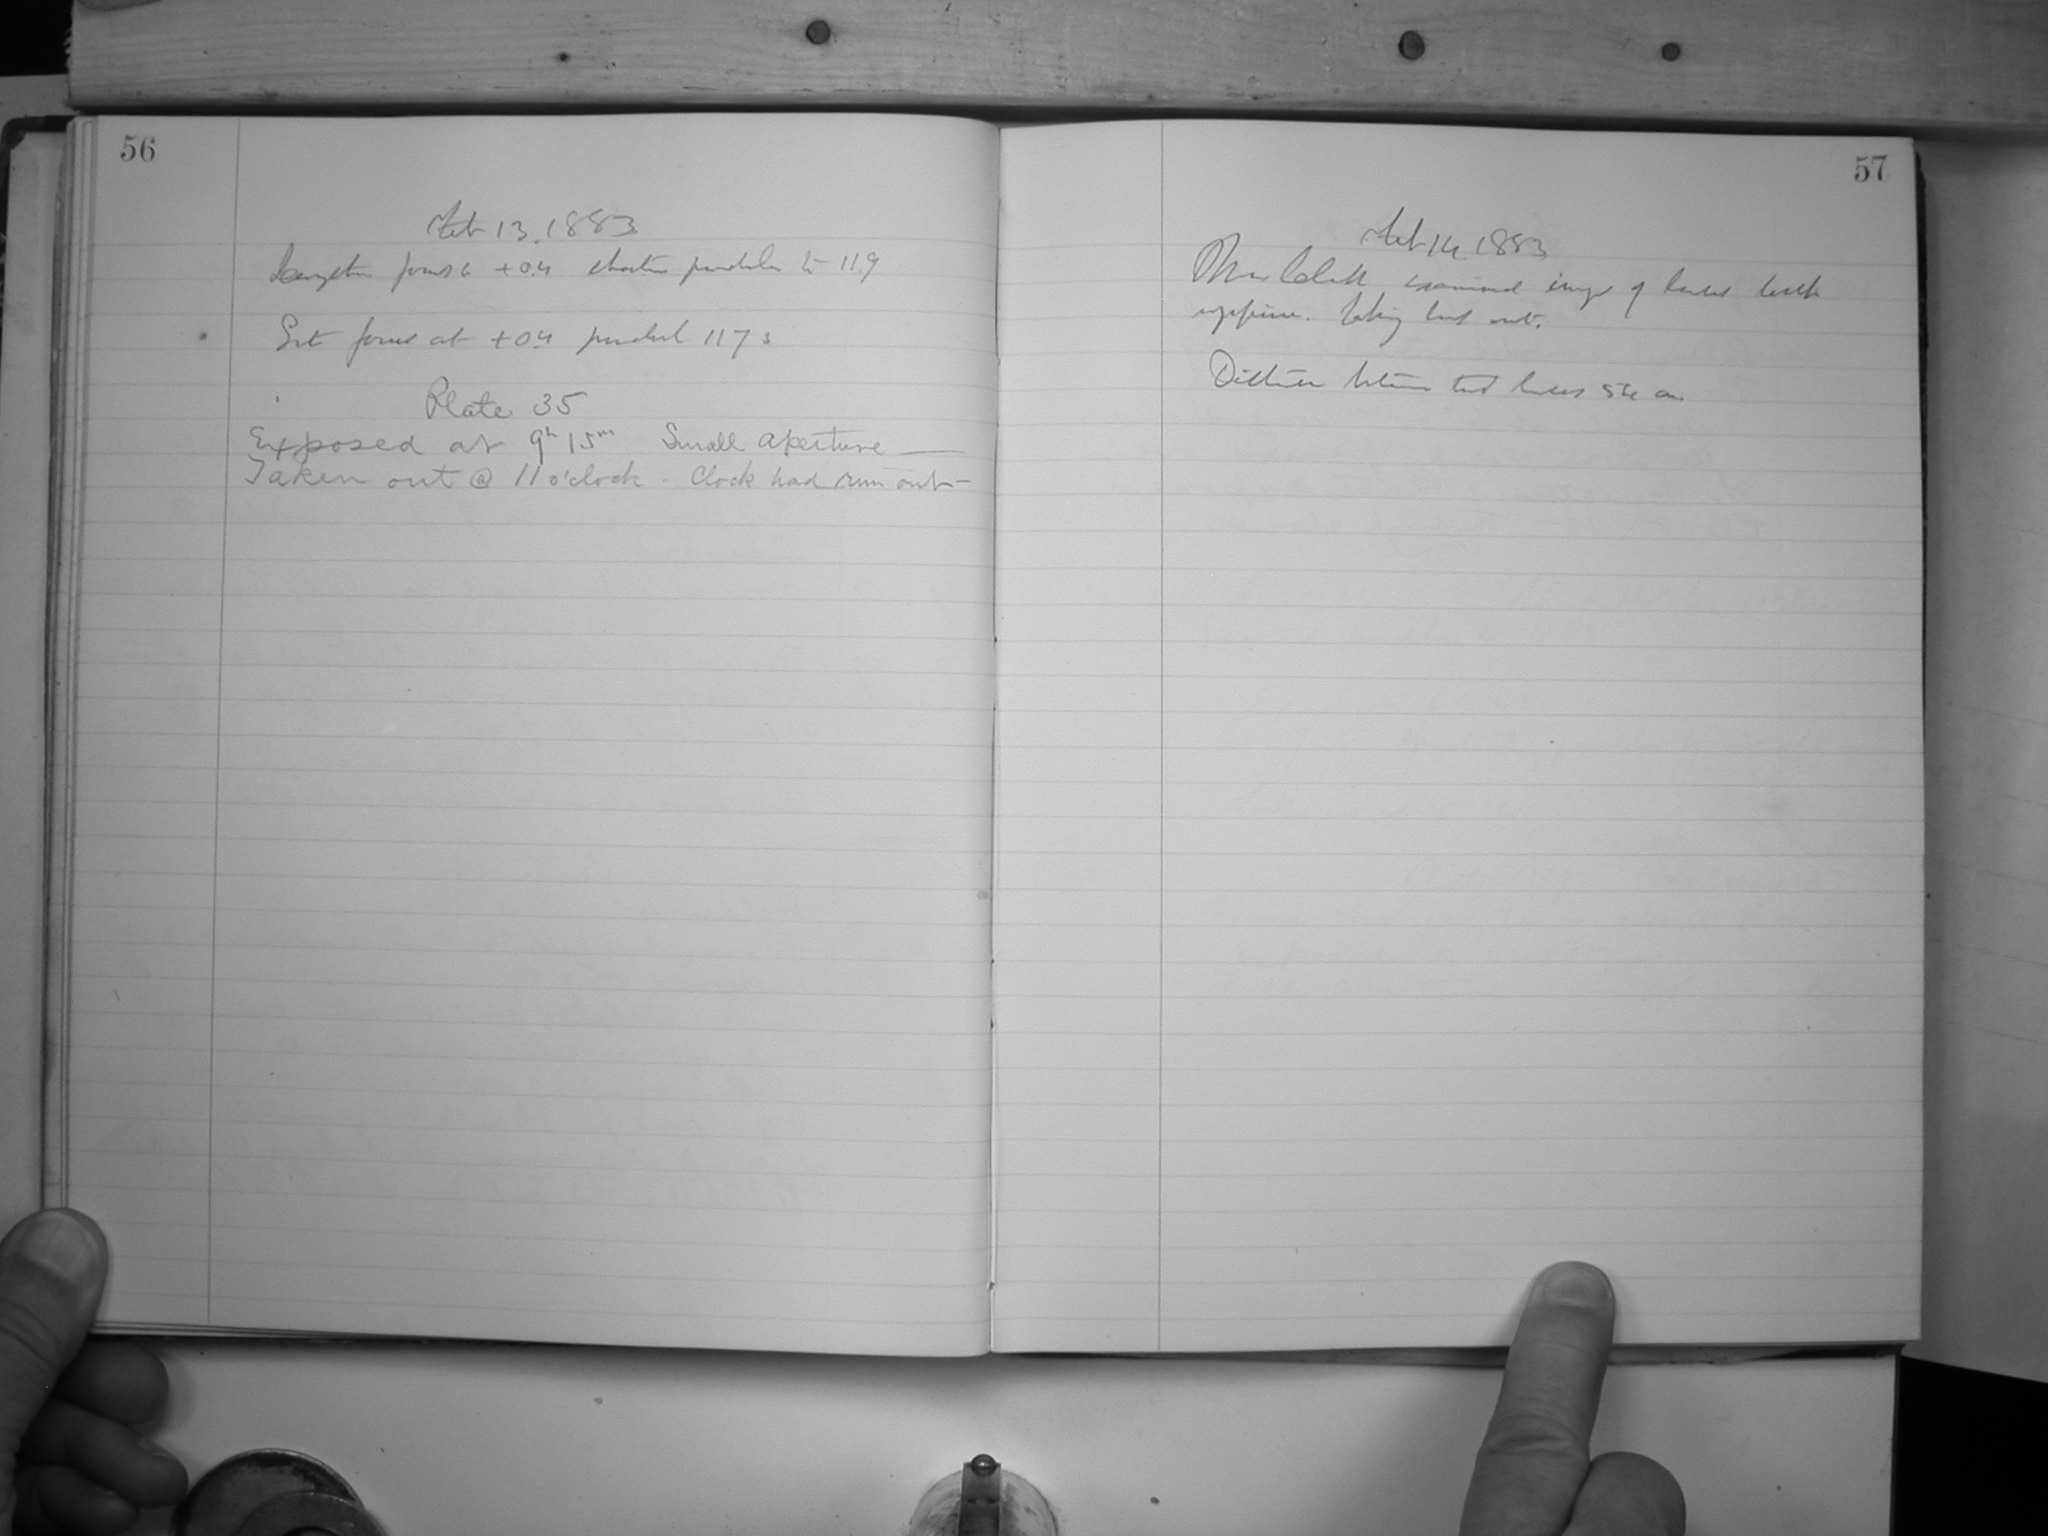 56
Feb 13, 1883
Lengthen focus to +0.4 shorten pendulum to 11.9
Set focus at +0.4 pendul 117 s
Plate 35
Exposed at 9h 15m Small aperture —
Taken out @ 11 o'clock. Clock had run out —
57
Feb 14, 1883
examined image of lenses
taking out.
Distance between lenses